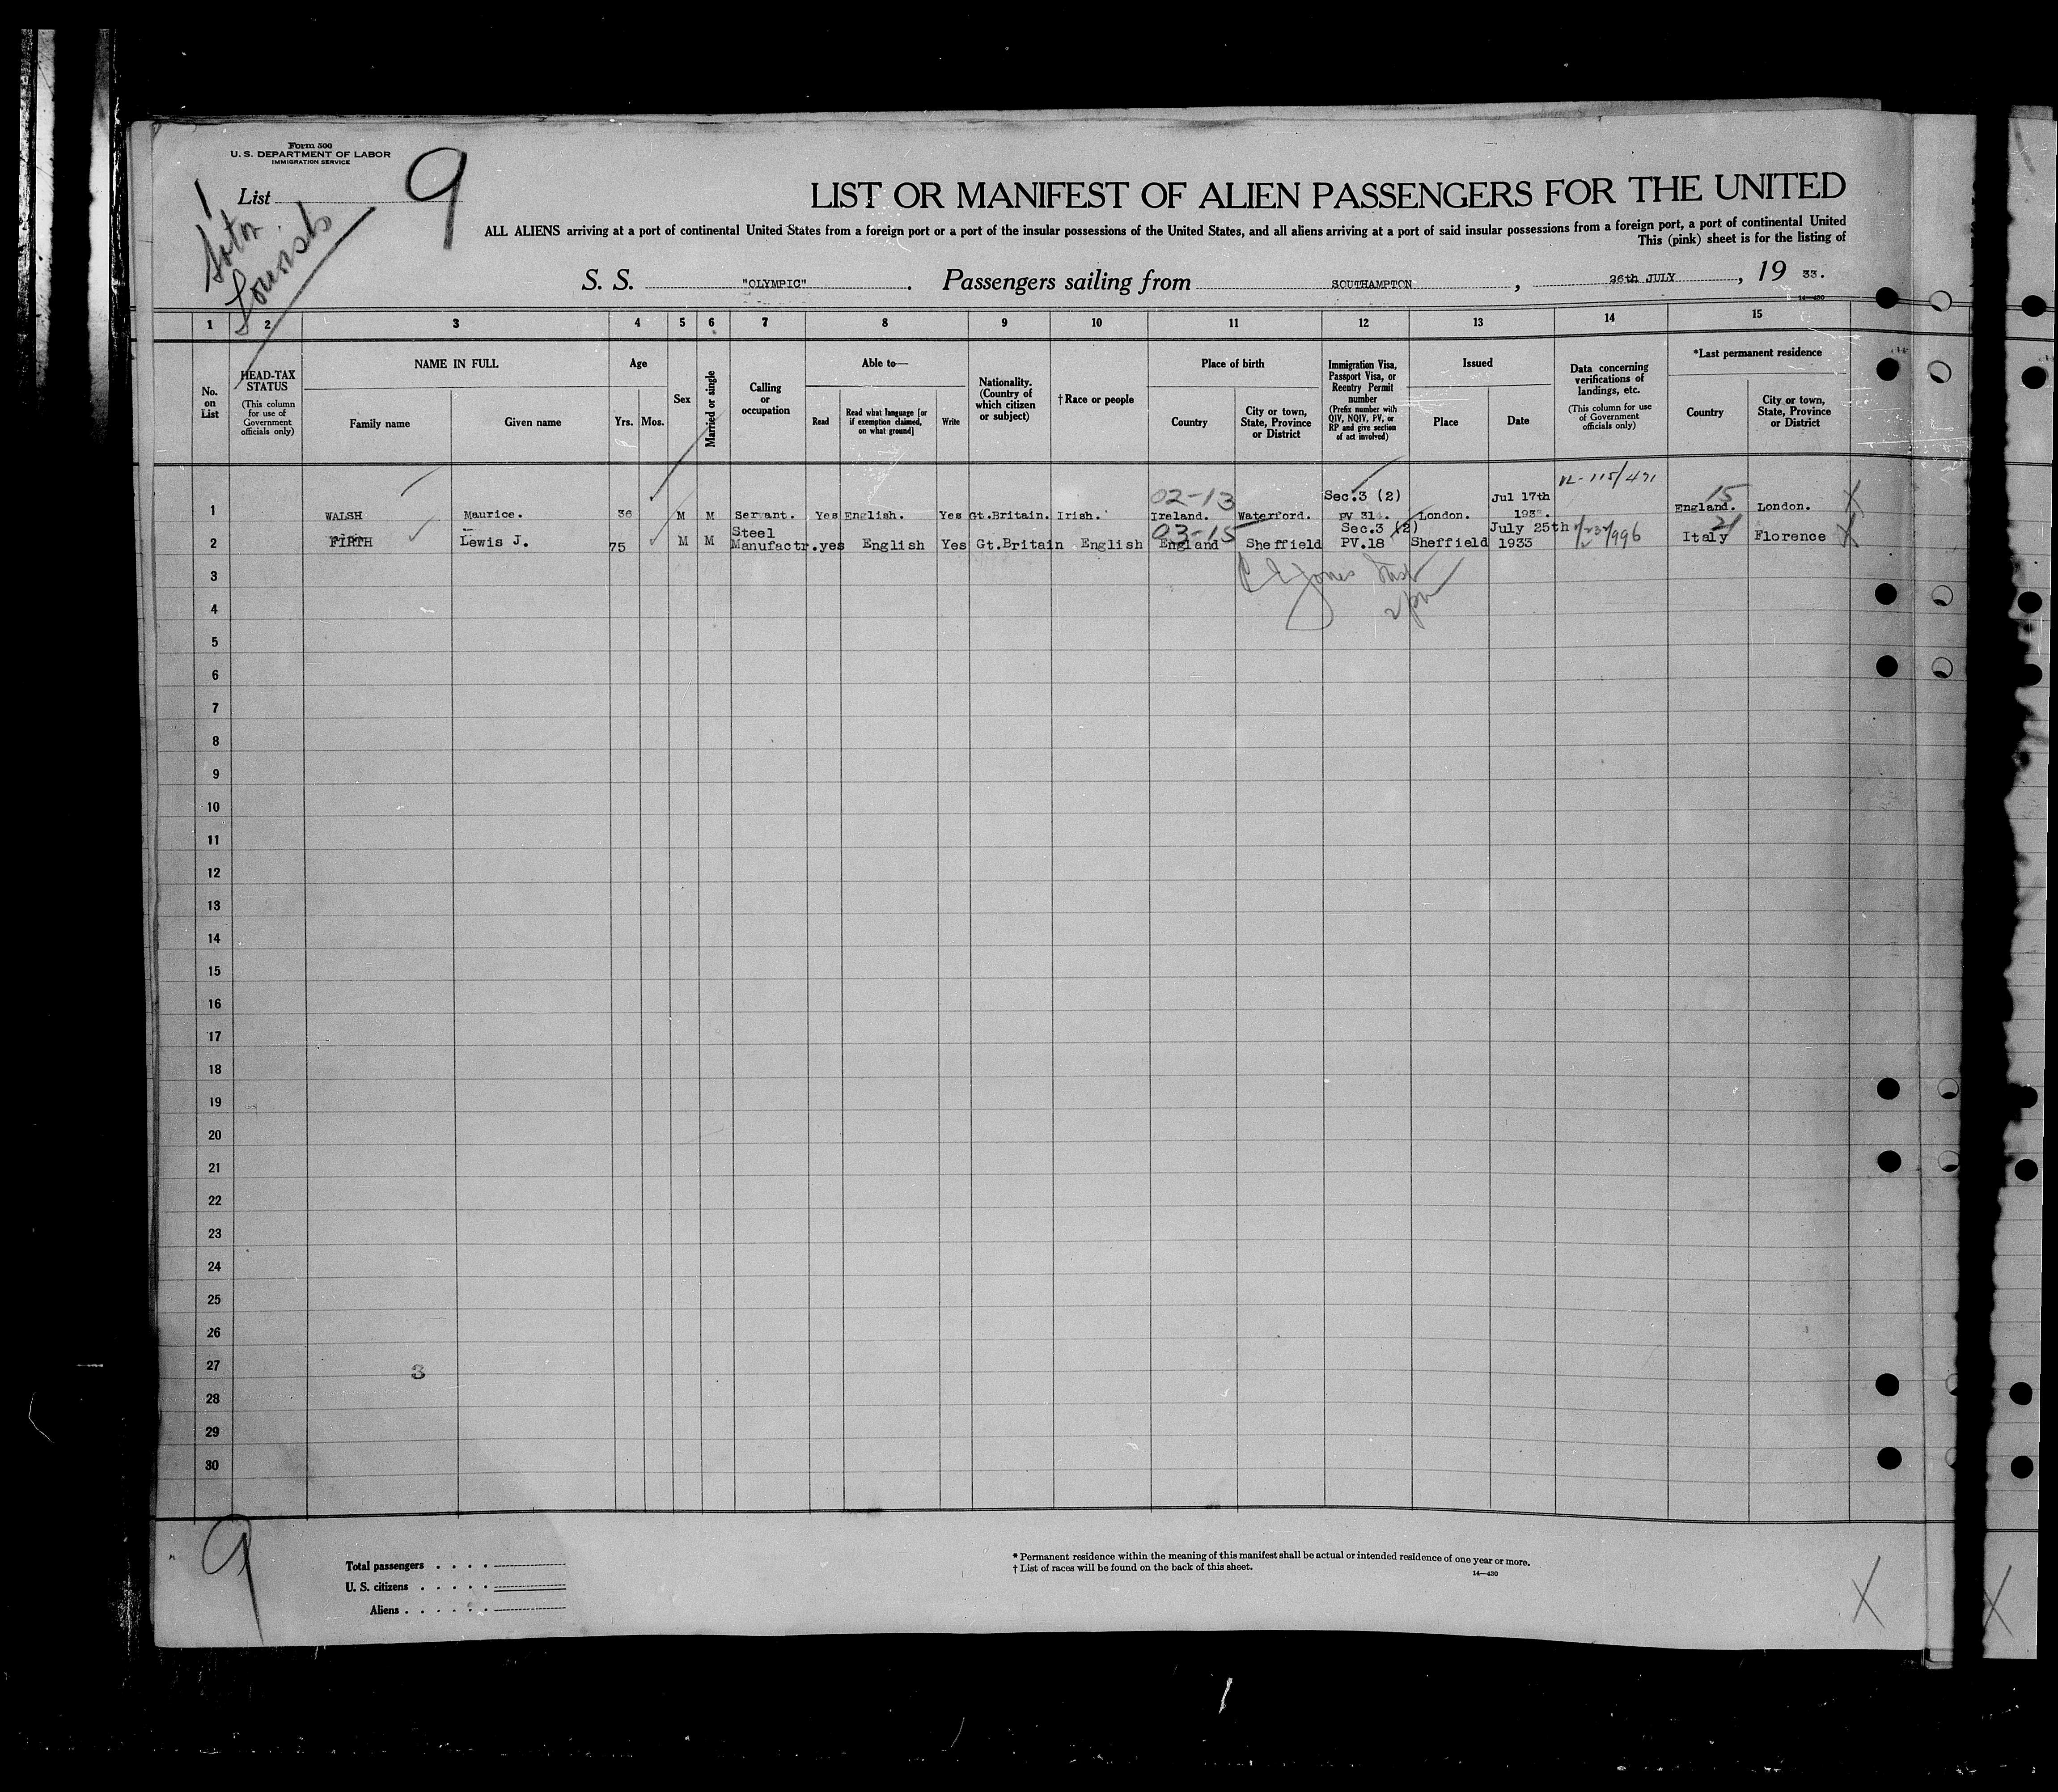 Form 500
U. S. DEPARTMENT OF LABOR
IMMIGRATION SERVICE
List 9
1
Tourists
LIST OR MANIFEST OF ALIEN PASSENGERS FOR THE UNITED
ALL ALIENS arriving at a port of continental United States from a foreign port or a port of the insular possessions of the United States, and all aliens arriving at a port of said insular possessions from a foreign port, a port of continental United
This (pink) sheet is for the listing of
S. S. "OLYMPIC". Passengers sailing from SOUTHAMPTON, 26th JULY, 19 33.
14—430
1 2 3 4 5 6 7 8 9 10 11 12 13 14 15
No. on List
HEAD-TAX STATUS (This column for use of Government officials only)
NAME IN FULL
Family name Given name
Age
Yrs. Mos.
Sex
Married or single
Calling or occupation
Able to—
Read Read what language [or if exemption claimed, on what ground] Write
Nationality. (Country of which citizen or subject)
† Race or people
Place of birth
Country City or town, State, Province or District
Immigration Visa, Passport Visa, or Reentry Permit number (Prefix number with QIV, NQIV, PV, or RP and give section of act involved)
Issued
Place Date
Data concerning verifications of landings, etc. (This column for use of Government officials only)
*Last permanent residence
Country City or town, State, Province or District
02-13 Sec.3 (2) Jul 17th 15
1 WALSH Maurice. 36 M M Servant. Yes English. Yes Gt.Britain. Irish. Ireland. Waterford. PV 31 London. 193 . England. London. X
03-15 Steel Sec.3 (2) July 25th 21
2 FIRTH Lewis J. 75 M M Manufactr. yes English Yes Gt.Britain English England Sheffield PV.18 Sheffield 1933 Italy Florence X
Jones
3
4
5
6
7
8
9
10
11
12
13
14
15
16
17
18
19
20
21
22
23
24
25
26
27 3
28
29
30
9
Total passengers . . . .
U. S. citizens . . . . .
Aliens . . . . . .
* Permanent residence within the meaning of this manifest shall be actual or intended residence of one year or more.
† List of races will be found on the back of this sheet.
14—430
X X